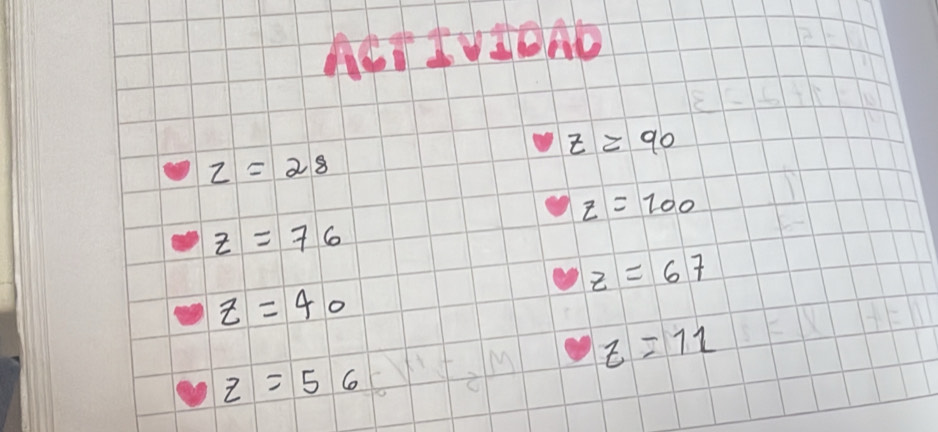 ACTIVIDAD
Z = 28
Z = 76
Z = 40
Z = 56
Z = 90
Z = 100
Z = 67
Z = 11